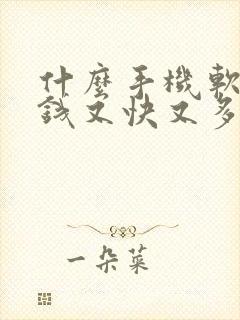 什麼手機軟
錢又快又多
一朵菜